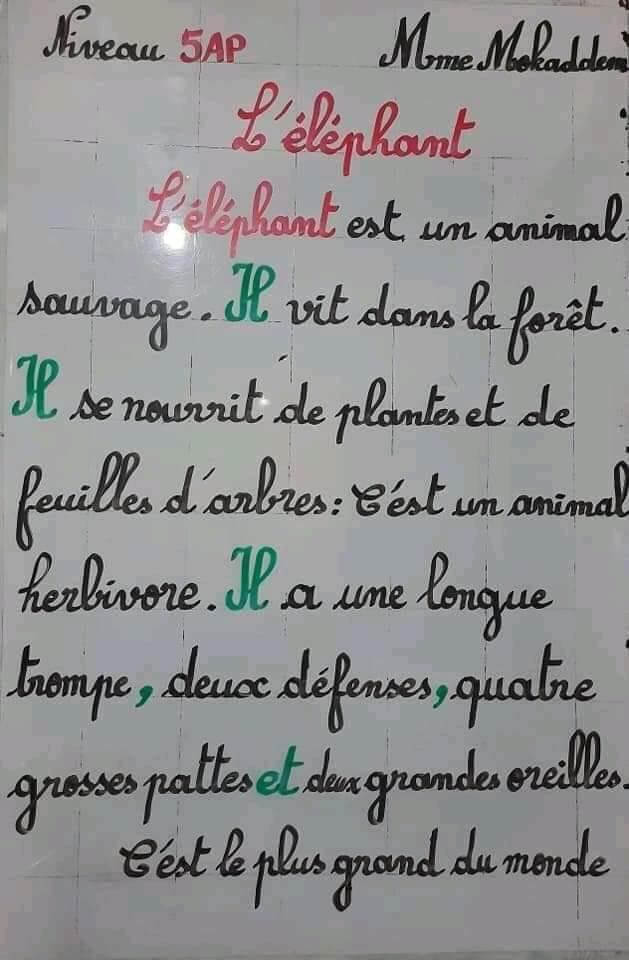 Niveau 5AP Mme Mokaddem
L'éléphant
L'éléphant est un animal
sauvage. Il vit dans la forêt.
Il se nourrit de plantes et de
feuilles d'arbres : C'est un animal
herbivore. Il a une longue
trompe, deux défenses, quatre
grosses pattes et deux grandes oreilles.
C'est le plus grand du monde